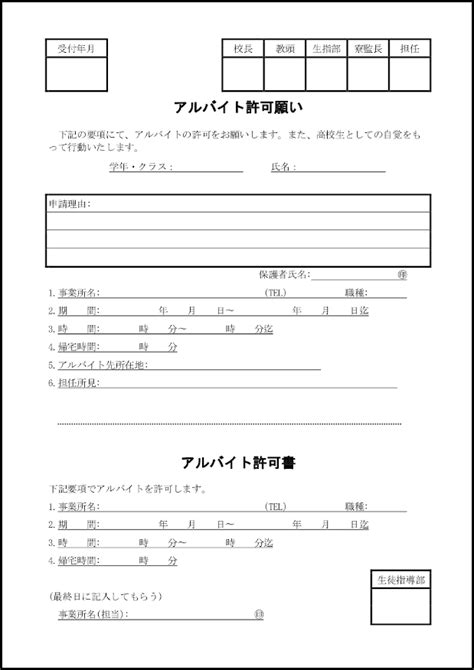 受付年月
校長 教頭 生指部 寮監長 担任
アルバイト許可願い
下記の要項にて、アルバイトの許可をお願いします。また、高校生としての自覚をも
って行動いたします。
学年・クラス: 氏名:
申請理由:
保護者氏名: ㊞
1.事業所名: (TEL) 職種:
2.期 間: 年 月 日～ 年 月 日迄
3.時 間: 時 分～ 時 分迄
4.帰宅時間: 時 分
5.アルバイト先所在地:
6.担任所見:
アルバイト許可書
下記要項でアルバイトを許可します。
1.事業所名: (TEL) 職種:
2.期 間: 年 月 日～ 年 月 日迄
3.時 間: 時 分～ 時 分迄
4.帰宅時間: 時 分
生徒指導部
(最終日に記入してもらう)
事業所名(担当): ㊞